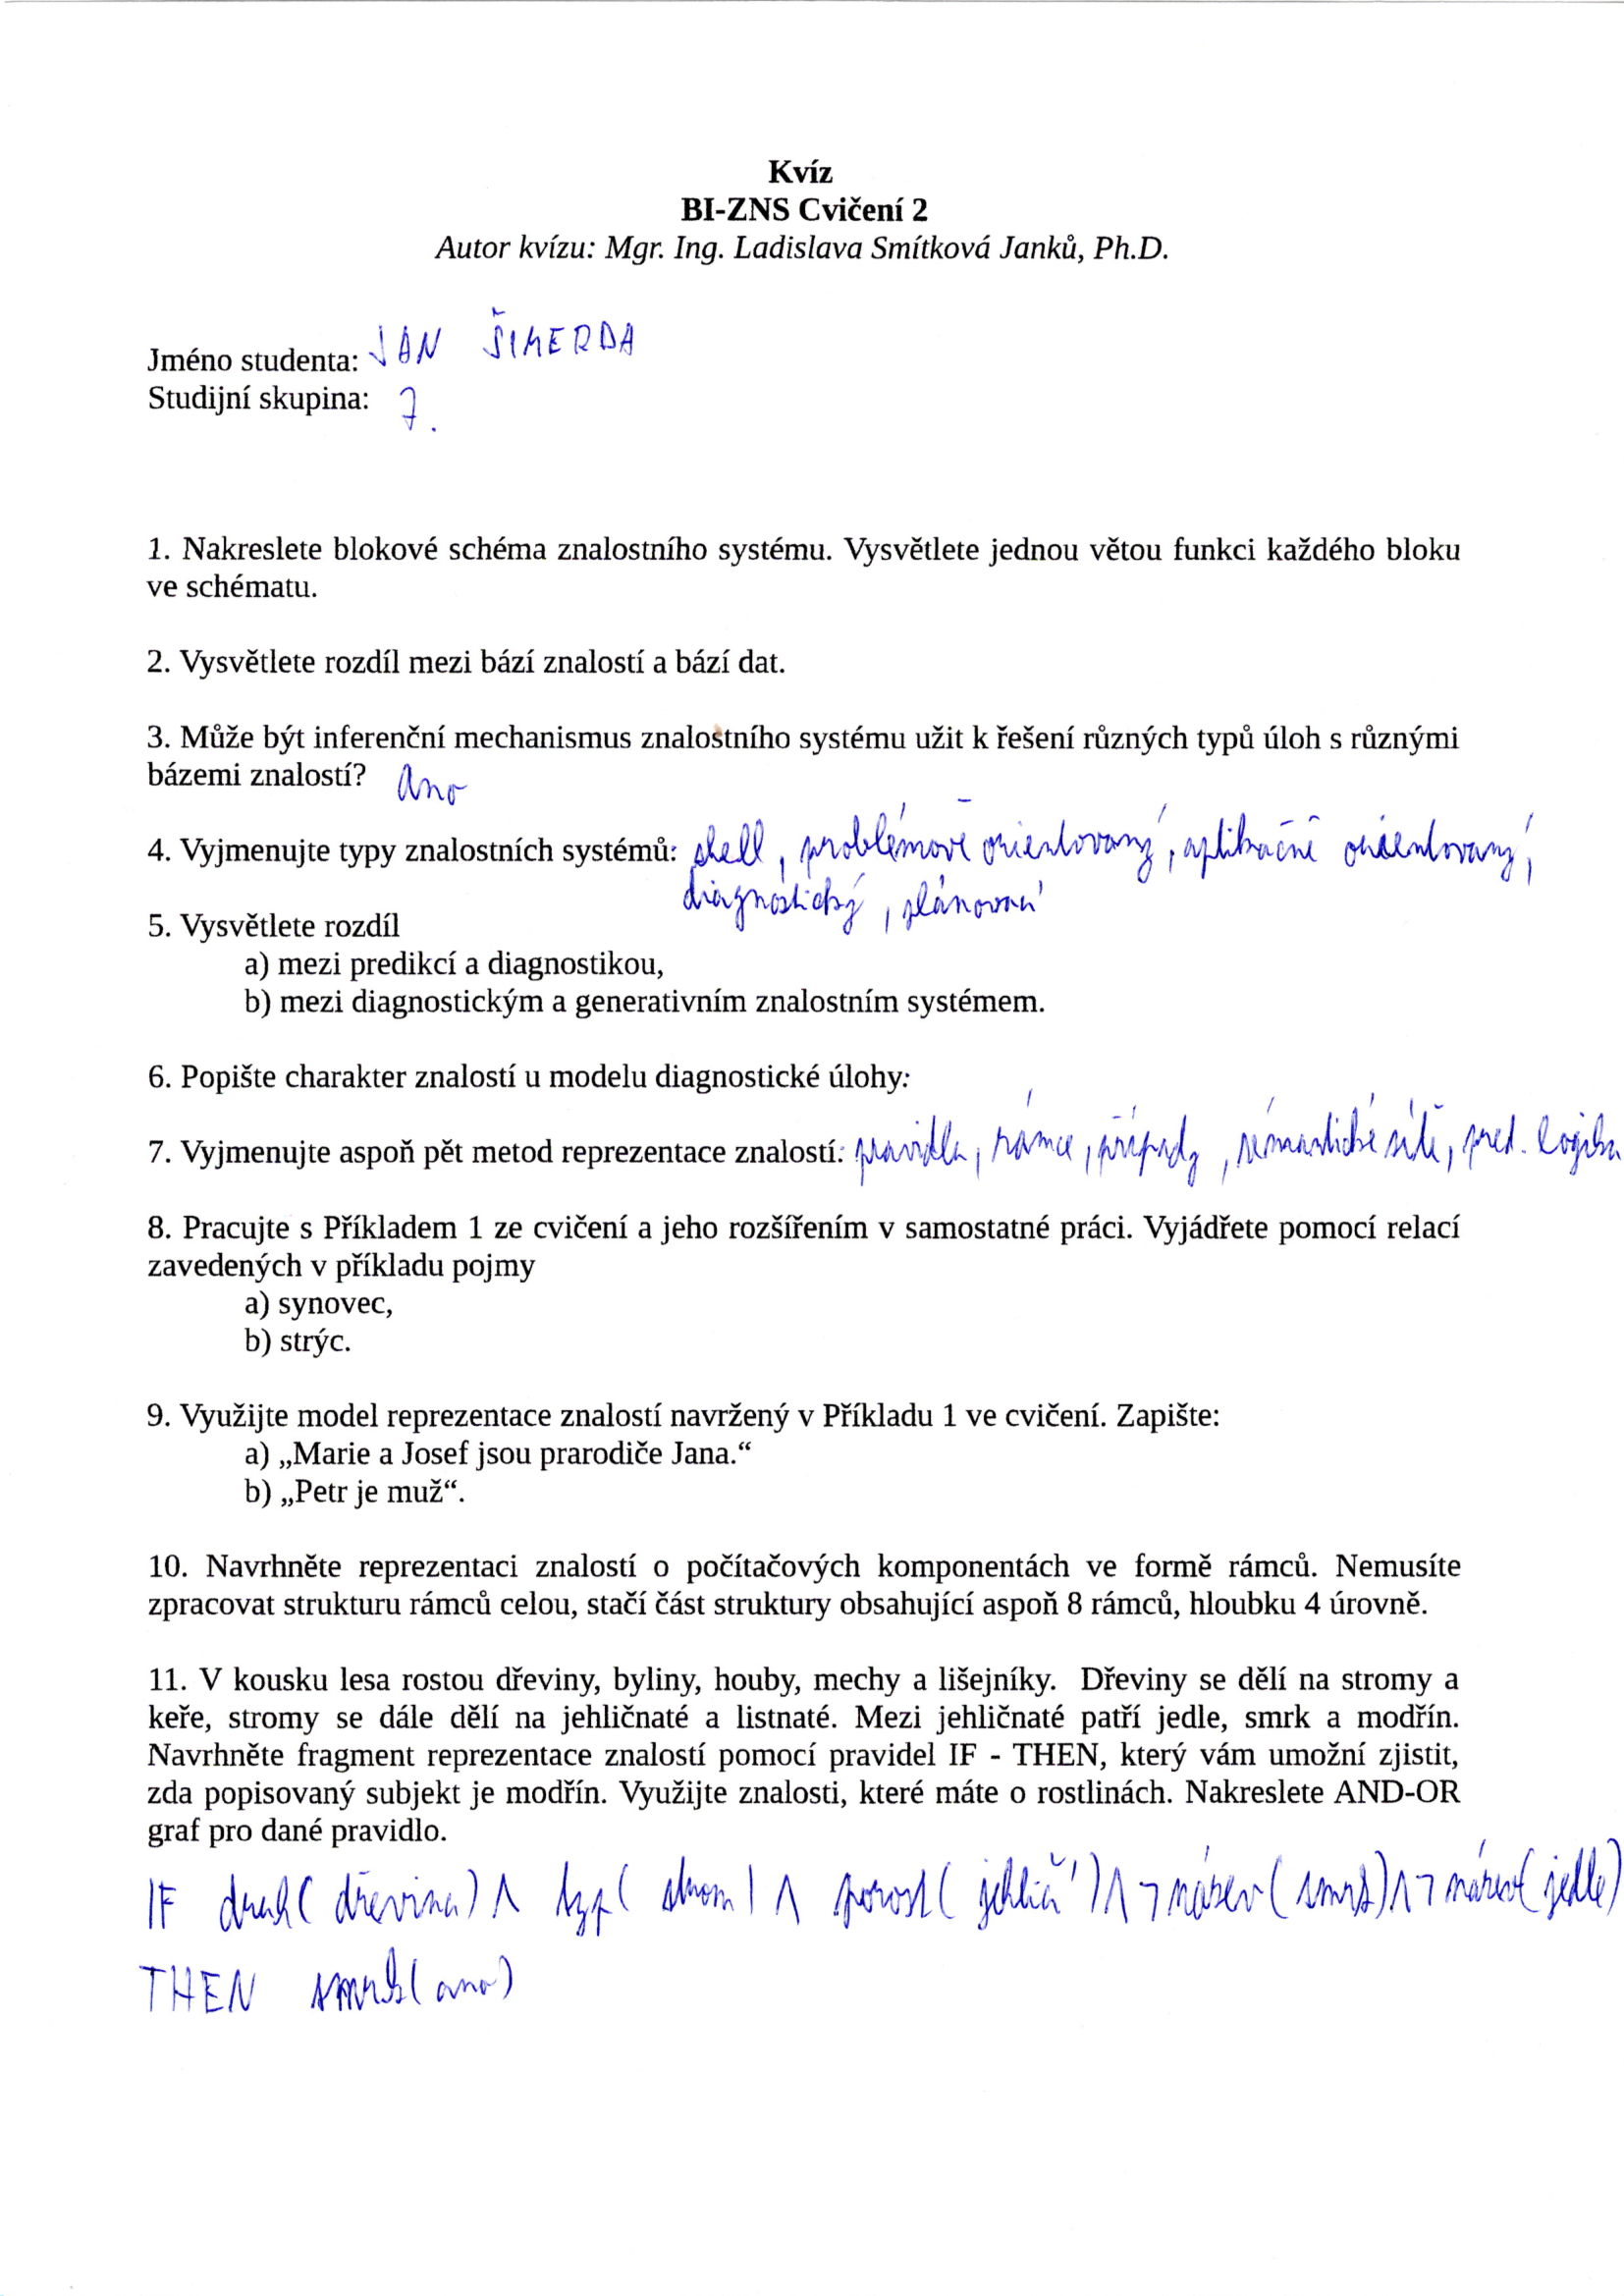 Kvíz
BI-ZNS Cvičení 2
Autor kvízu: Mgr. Ing. Ladislava Smítková Janků, Ph.D.
Jméno studenta: JAN ŠIMERDA
Studijní skupina: 7.
1. Nakreslete blokové schéma znalostního systému. Vysvětlete jednou větou funkci každého bloku
ve schématu.
2. Vysvětlete rozdíl mezi bází znalostí a bází dat.
3. Může být inferenční mechanismus znalostního systému užit k řešení různých typů úloh s různými
bázemi znalostí? Ano
4. Vyjmenujte typy znalostních systémů: shell, problémově orientovaný, aplikačně orientovaný,
diagnostický, plánovací
5. Vysvětlete rozdíl
a) mezi predikcí a diagnostikou,
b) mezi diagnostickým a generativním znalostním systémem.
6. Popište charakter znalostí u modelu diagnostické úlohy:
7. Vyjmenujte aspoň pět metod reprezentace znalostí: pravidla, rámce, případy, sémantické sítě, pred. logika
8. Pracujte s Příkladem 1 ze cvičení a jeho rozšířením v samostatné práci. Vyjádřete pomocí relací
zavedených v příkladu pojmy
a) synovec,
b) strýc.
9. Využijte model reprezentace znalostí navržený v Příkladu 1 ve cvičení. Zapište:
a) „Marie a Josef jsou prarodiče Jana.“
b) „Petr je muž“.
10. Navrhněte reprezentaci znalostí o počítačových komponentách ve formě rámců. Nemusíte
zpracovat strukturu rámců celou, stačí část struktury obsahující aspoň 8 rámců, hloubku 4 úrovně.
11. V kousku lesa rostou dřeviny, byliny, houby, mechy a lišejníky. Dřeviny se dělí na stromy a
keře, stromy se dále dělí na jehličnaté a listnaté. Mezi jehličnaté patří jedle, smrk a modřín.
Navrhněte fragment reprezentace znalostí pomocí pravidel IF - THEN, který vám umožní zjistit,
zda popisovaný subjekt je modřín. Využijte znalosti, které máte o rostlinách. Nakreslete AND-OR
graf pro dané pravidlo.
IF druh(dřevina) ∧ typ(strom) ∧ porost(jehličí) ∧ ¬název(smrk) ∧ ¬název(jedle)
THEN smrk(ano)